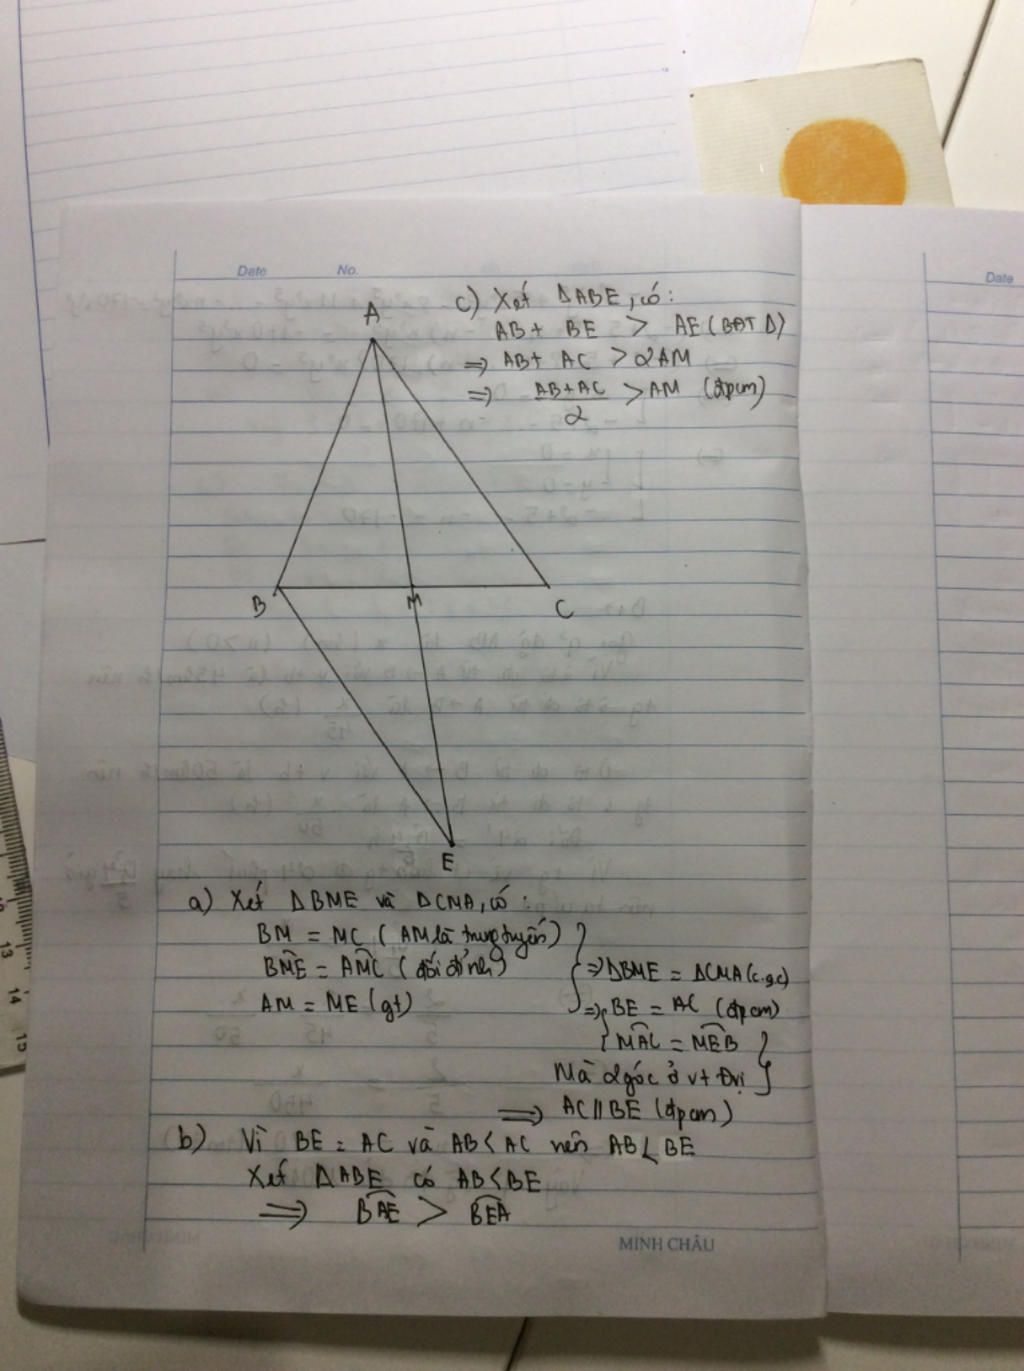 Date No.
Date
A
B
M
C
E
c) Xét ΔABE, có:
AB + BE > AE (BĐT Δ)
=> AB + AC > 2AM
=> (AB+AC)/2 > AM (đpcm)
a) Xét ΔBME và ΔCMA, có:
BM = MC (AM là trung tuyến)
BME = AMC (đối đỉnh)
AM = ME (gt)
=> ΔBME = ΔCMA (c.g.c)
=> BE = AC (đpcm)
MAC = MEB
Mà 2 góc ở vt Đvị
=> AC // BE (đpcm)
b) Vì BE = AC và AB < AC nên AB < BE
Xét ΔABE có AB < BE
=> BAE > BEA
MINH CHÂU
13
14
15